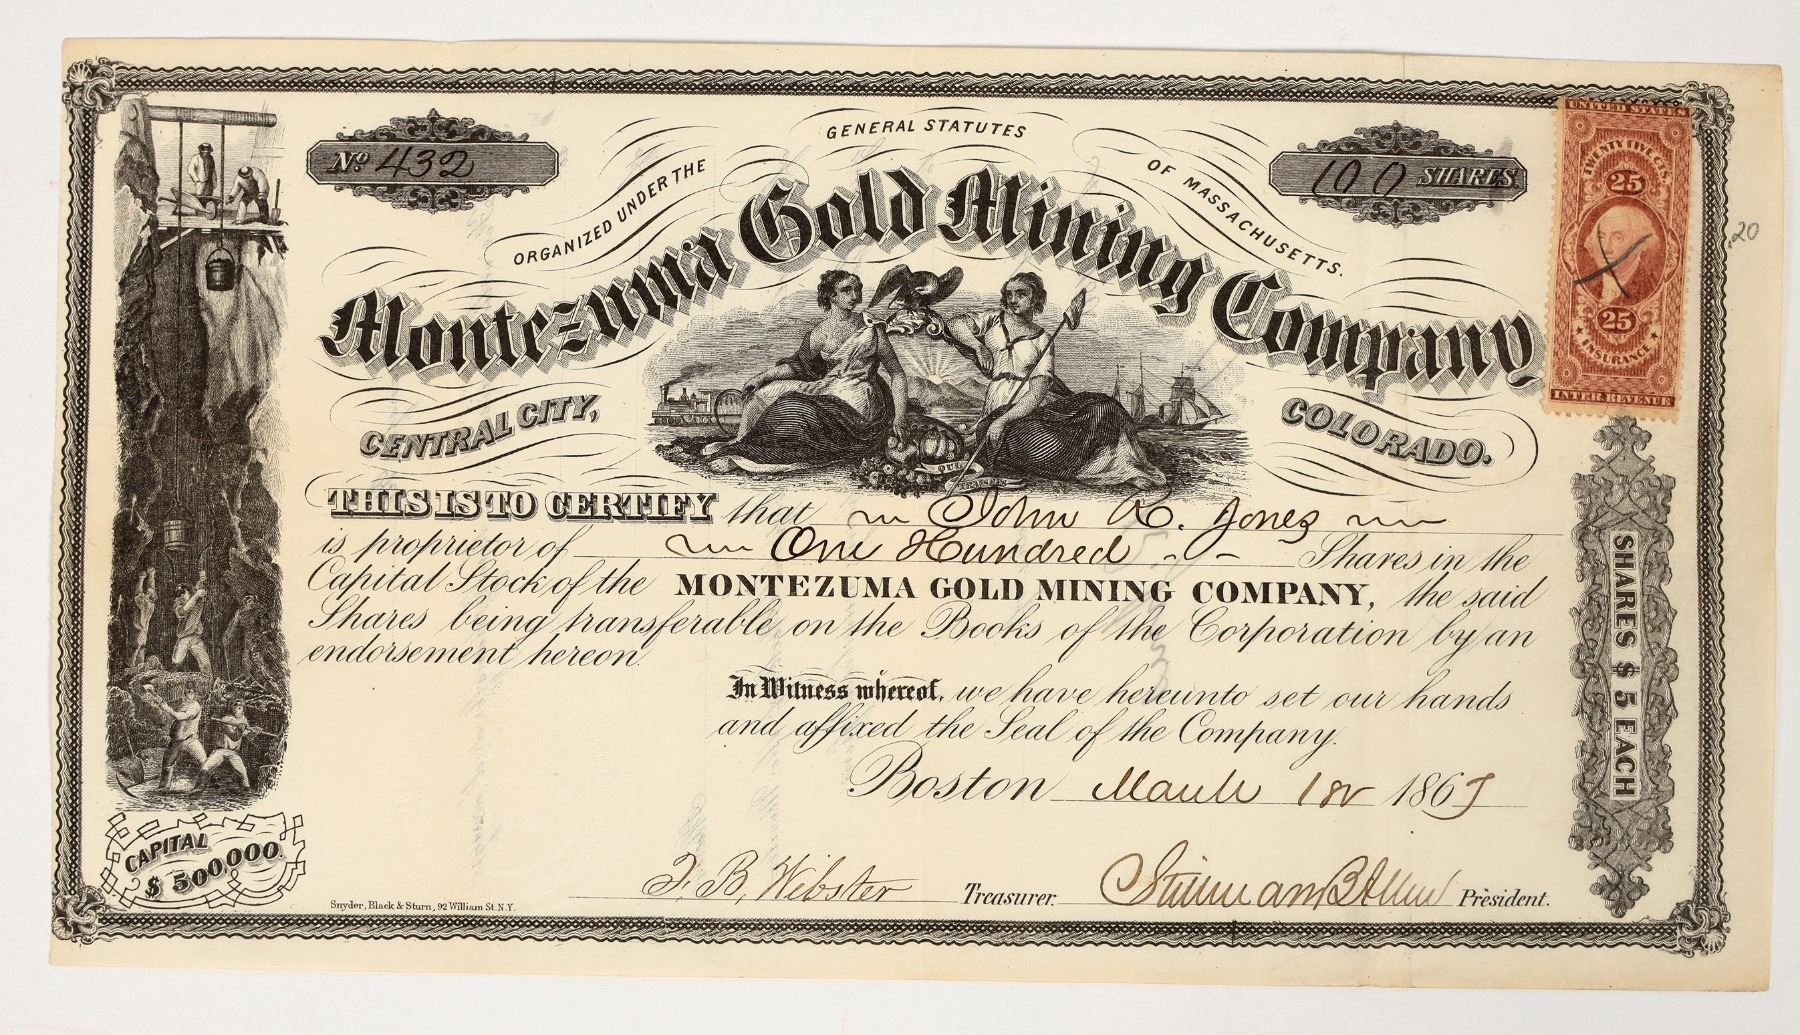 No. 432
100 SHARES
ORGANIZED UNDER THE GENERAL STATUTES OF MASSACHUSETTS.
Montezuma Gold Mining Company
CENTRAL CITY, COLORADO.
UNITED STATES
TWENTY FIVE CTS.
25
25
INSURANCE
INTER. REVENUE
20
THIS IS TO CERTIFY that John R. Jones
is proprietor of One Hundred Shares in the
Capital Stock of the MONTEZUMA GOLD MINING COMPANY, the said
Shares being transferable on the Books of the Corporation by an
endorsement hereon.
In Witness whereof, we have hereunto set our hands
and affixed the Seal of the Company.
Boston March 1st 1865
SHARES $5 EACH
CAPITAL
$500,000.
Snyder, Black & Sturn, 92 William St. N.Y.
F. B. Webster Treasurer.
Stillman B. Allen President.